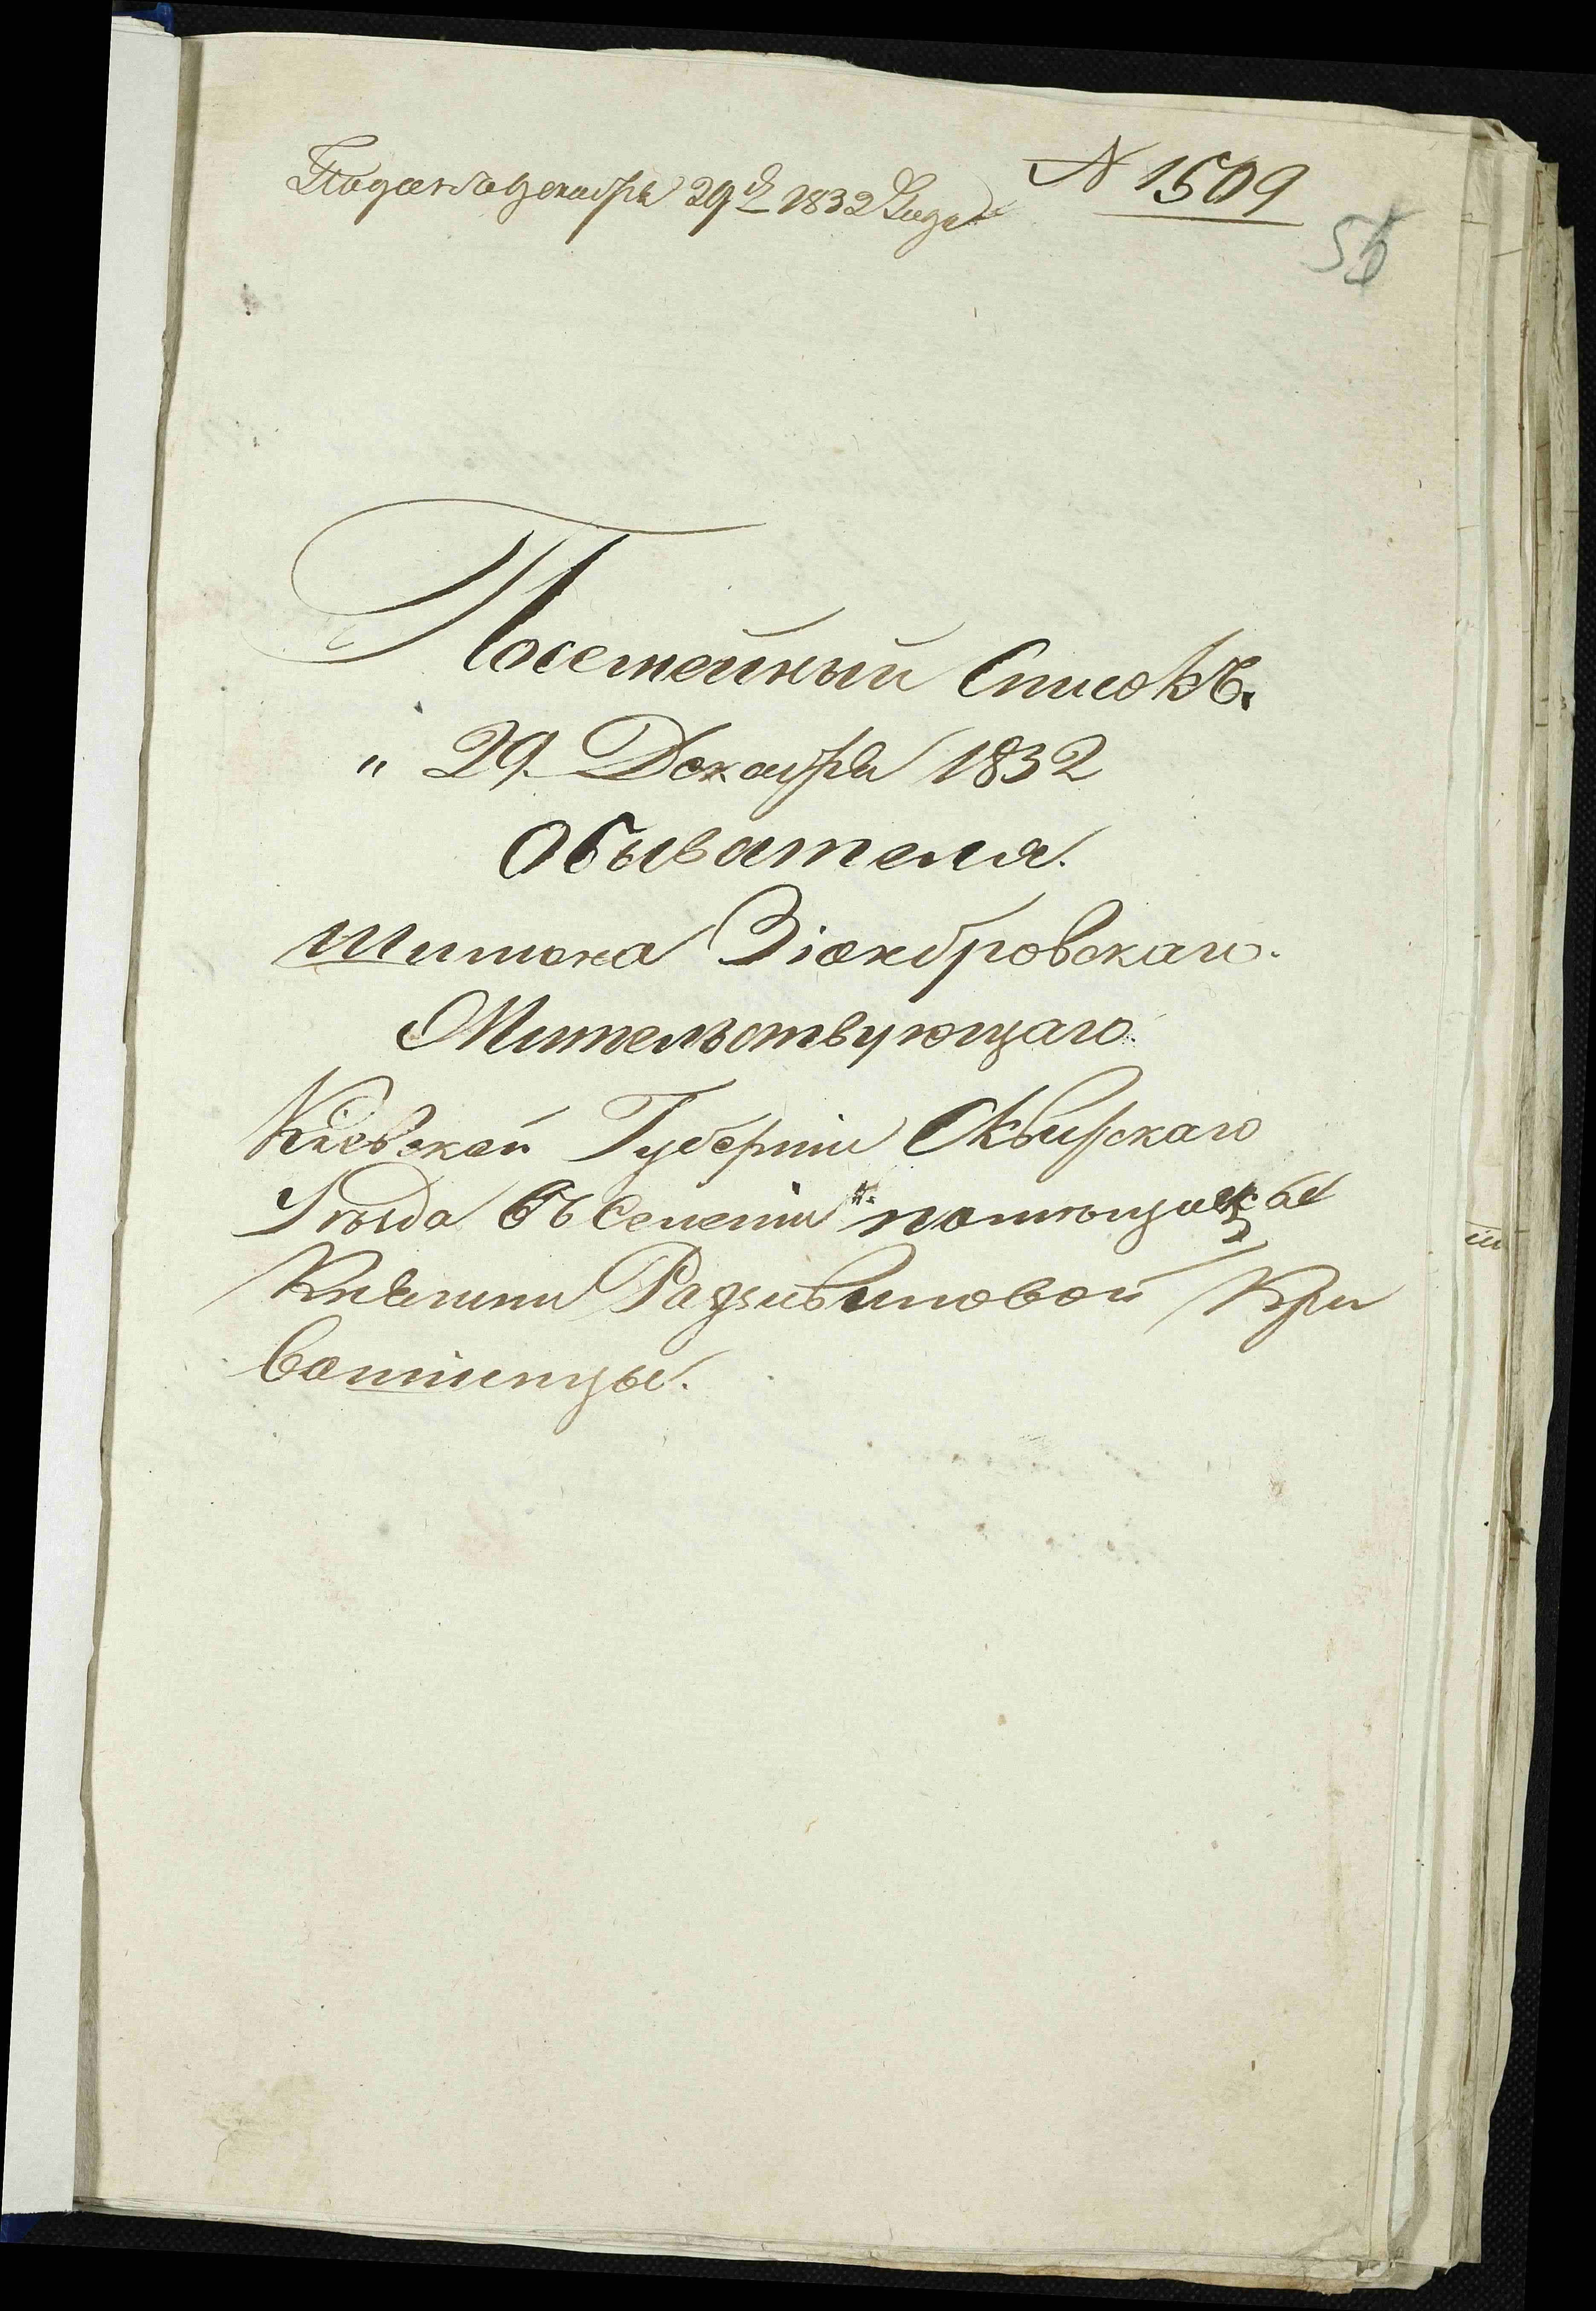 Поданъ декабря 29 д 1832 Года № 1509
55
Посемейный Списокъ.
„ 29. Декабря 1832
Обывателя.
Шимона Зіомбровскаго.
Жительствующаго.
Кіевской Губерніи Сквирскаго
Уезда въ Селеніи помещицы
Княгини Радзивиловой Кри
вошіинцы.